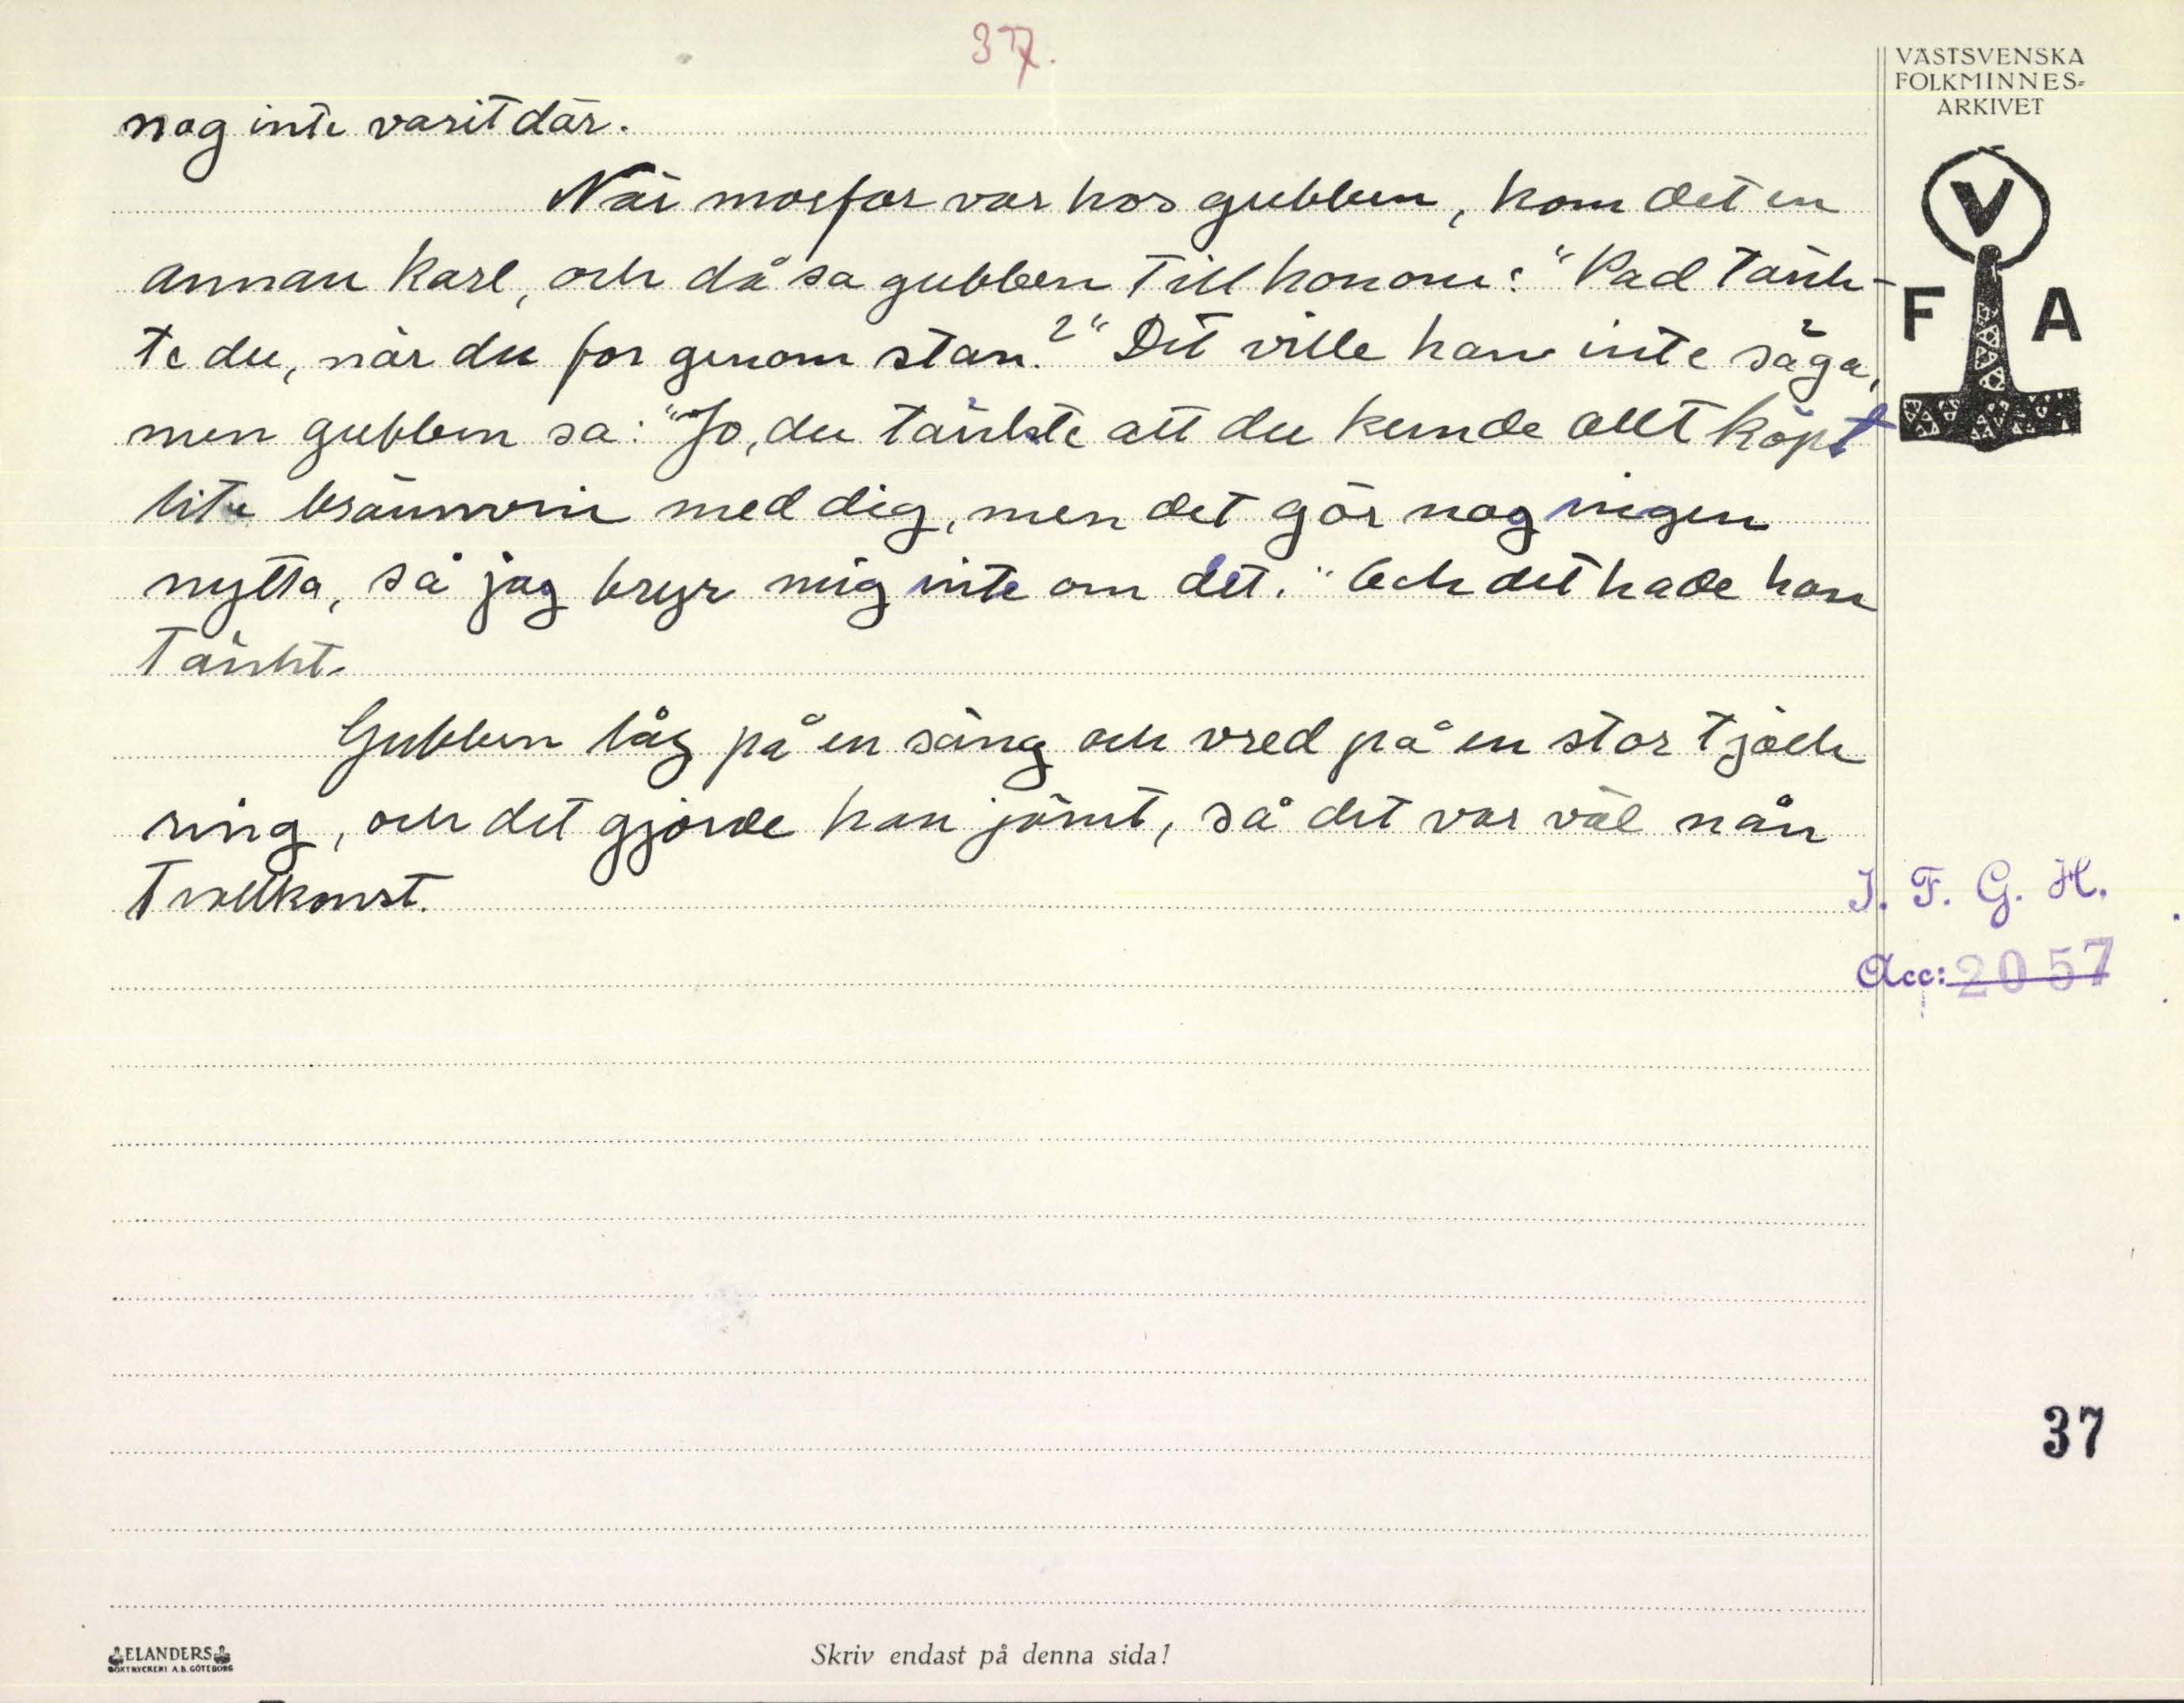 37.
VÄSTSVENSKA
FOLKMINNES-
ARKIVET
V
F A
nog inte varit där.
När morfar var hos gubben, kom det en
annan karl, och då sa gubben till honom: "Vad tänk-
te du, när du for genom stan?" Det ville han inte säga,
men gubben sa: "Jo, du tänkte att du kunde allt köpt
lite brännvin med dig, men det gör nog ingen
nytta, så jag bryr mig inte om det." Och det hade han
tänkt.
Gubben låg på en säng och vred på en stor tjock
ring, och det gjorde han jämt, så det var väl nån
trollkonst.
I. F. G. H.
Acc: 2057
37
ELANDERS
BOKTRYCKERI A.B. GÖTEBORG
Skriv endast på denna sida!